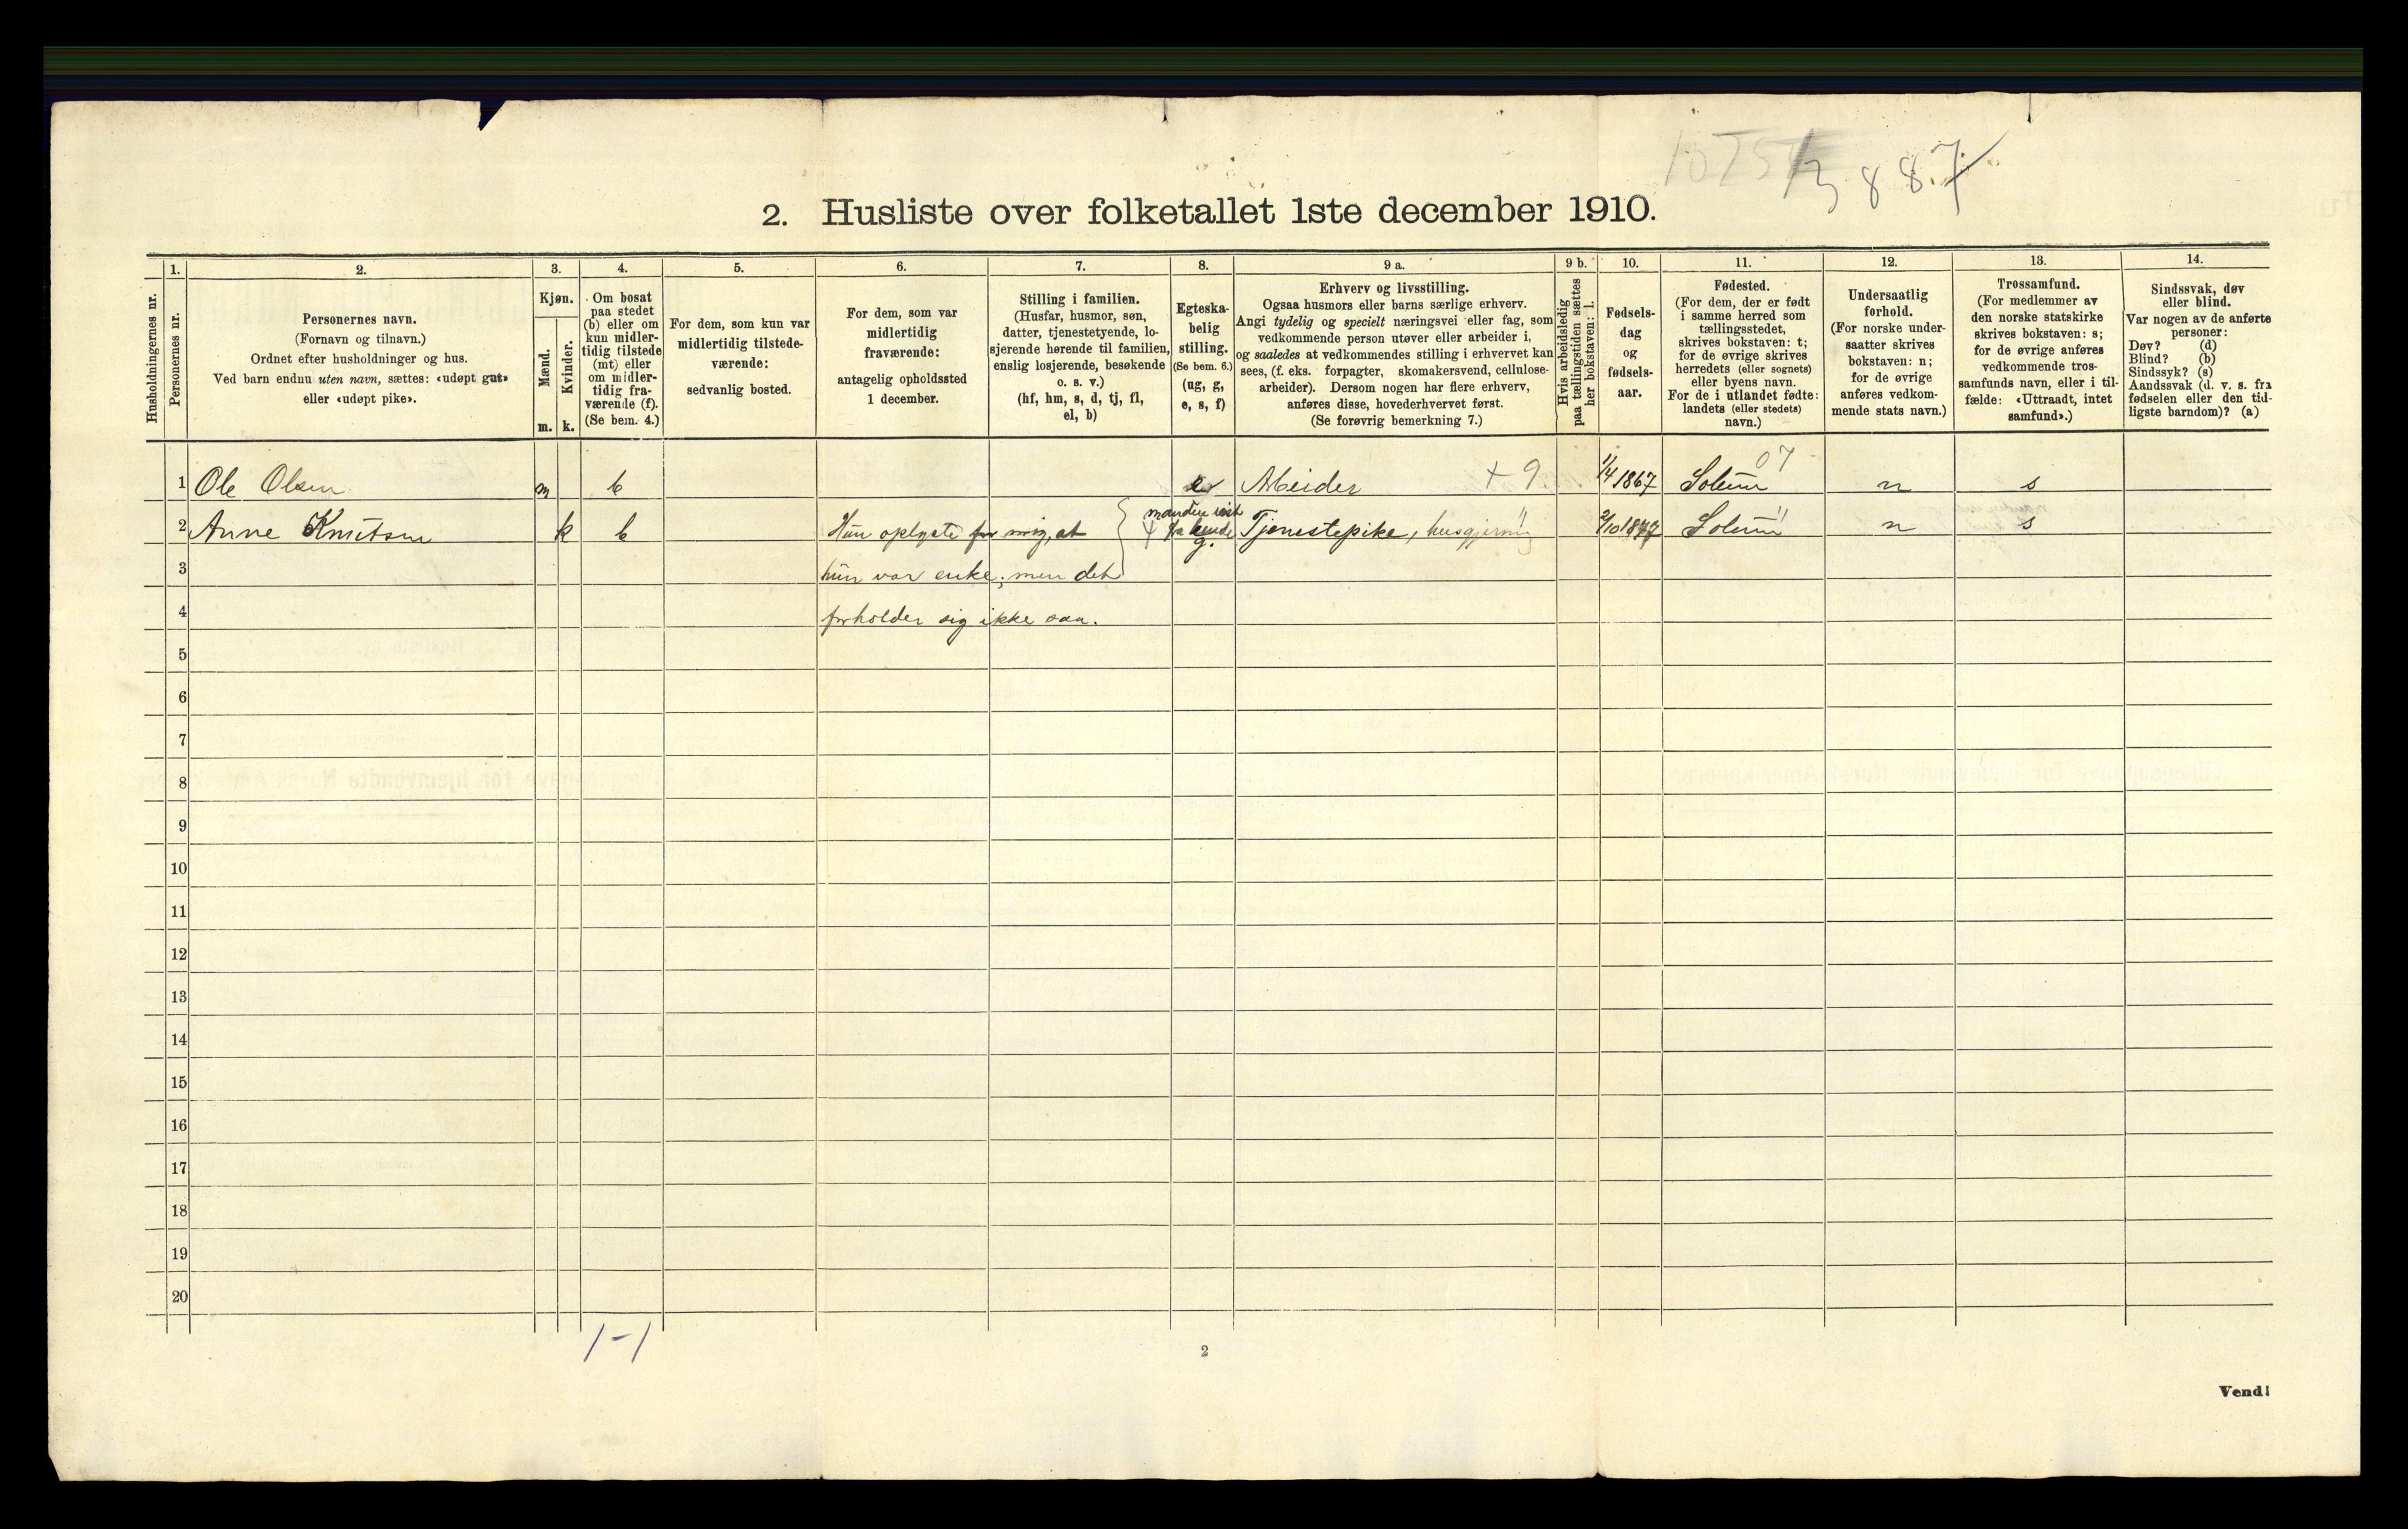 3887
2. Husliste over folketallet 1ste december 1910.
Husholdningernes nr.
1.
Personernes nr.
2.
Personernes navn.
(Fornavn og tilnavn.)
Ordnet efter husholdninger og hus.
Ved barn endnu uten navn, sættes: «udøpt gut»
eller «udøpt pike».
3.
Kjøn.
Mænd.
Kvinder.
m. k.
4.
Om bosat
paa stedet
(b) eller om
kun midler-
tidig tilstede
(mt) eller
om midler-
tidig fra-
værende (f).
(Se bem. 4.)
5.
For dem, som kun var
midlertidig tilstede-
værende:
sedvanlig bosted.
6.
For dem, som var
midlertidig
fraværende:
antagelig opholdssted
1 december.
7.
Stilling i familien.
(Husfar, husmor, søn,
datter, tjenestetyende, lo-
sjerende hørende til familien,
enslig losjerende, besøkende
o. s. v.)
(hf, hm, s, d, tj, fl,
el, b)
8.
Egteska-
belig
stilling.
(Se bem. 6.)
(ug, g,
e, s, f)
9 a.
Erhverv og livsstilling.
Ogsaa husmors eller barns særlige erhverv.
Angi tydelig og specielt næringsvei eller fag, som
vedkommende person utøver eller arbeider i,
og saaledes at vedkommendes stilling i erhvervet kan
sees, (f. eks. forpagter, skomakersvend, cellulose-
arbeider). Dersom nogen har flere erhverv,
anføres disse, hovederhvervet først.
(Se forøvrig bemerkning 7.)
9 b.
Hvis arbeidsledig
paa tællingstiden sættes
her bokstaven: l.
10.
Fødsels-
dag
og
fødsels-
aar.
11.
Fødested.
(For dem, der er født
i samme herred som
tællingsstedet,
skrives bokstaven: t;
for de øvrige skrives
herredets (eller sognets)
eller byens navn.
For de i utlandet fødte:
landets (eller stedets)
navn.)
12.
Undersaatlig
forhold.
(For norske under-
saatter skrives
bokstaven: n;
for de øvrige
anføres vedkom-
mende stats navn.)
13.
Trossamfund.
(For medlemmer av
den norske statskirke
skrives bokstaven: s;
for de øvrige anføres
vedkommende tros-
samfunds navn, eller i til-
fælde: «Uttraadt, intet
samfund».)
14.
Sindssvak, døv
eller blind.
Var nogen av de anførte
personer:
Døv? (d)
Blind? (b)
Sindssyk? (s)
Aandssvak (d. v. s. fra
fødselen eller den tid-
ligste barndom)? (a)
07
1 Ole Olsen m b e Arbeider + 9 1/4 1867 Solum n s
manden reist
fra hende
2 Anne Knutsen k b Hun oplyste for mig, at g. Tjenestepike, husgjerning " 2/10 1877 Solum " n s
3 hun var enke; men det
4 forholder sig ikke saa.
5
6
7
8
9
10
11
12
13
14
15
16
17
18
19
20
1-1
2
Vend!